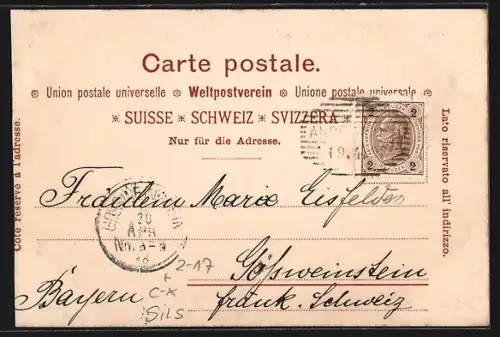 Carte postale.
Union postale universelle Weltpostverein Unione postale universale
SUISSE SCHWEIZ SVIZZERA
Nur für die Adresse.
Côté réservé à l'adresse.
Lato riservato all' indirizzo.
2 2
2 2
18.4
Fräulein Marie Eisfelder
20
APR
Nm. 8-9
Gößweinstein
Bayern
fränk. Schweiz
2-17
C-X
Sils